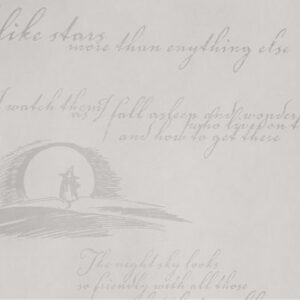 like stars
more than enything else
I watch them
as I fall asleep and wonder
who lives on t
and how to get there
The night sky looks
so friendly with all those